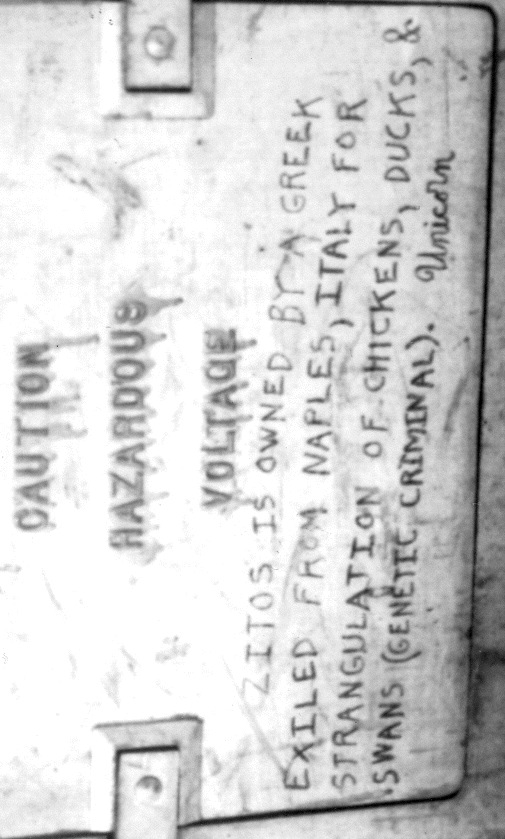 CAUTION
HAZARDOUS
VOLTAGE
ZITOS IS OWNED BY A GREEK
EXILED FROM NAPLES, ITALY FOR
STRANGULATION OF CHICKENS, DUCKS, &
SWANS (GENETIC CRIMINAL). Unicorn